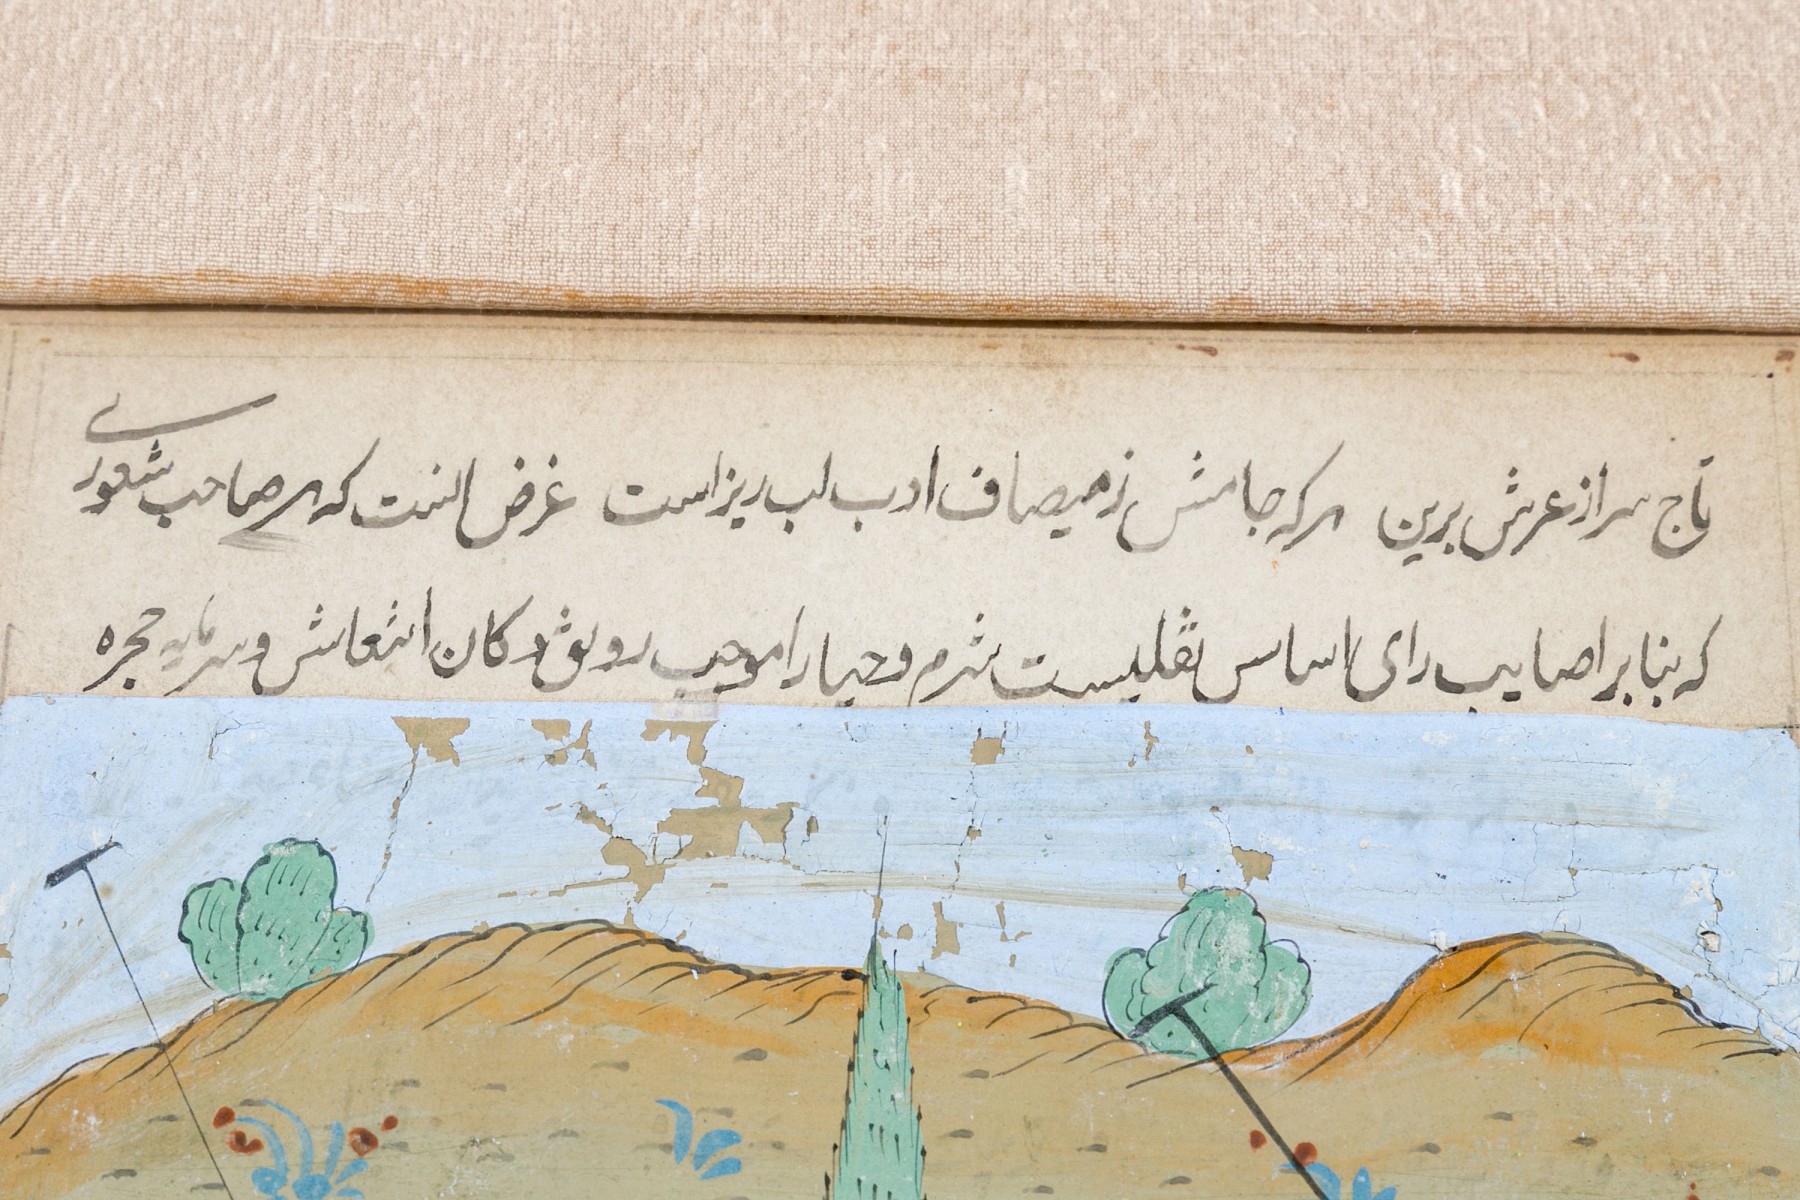 تاج سر از عرش برین هرکه جامش ز می صاف ادب لبریز است غرض اینست که هر صاحب شعوری
که بنا بر اصابت رای اساس شرم و حیا را موجب رونق دکان انتعاش و سرمایه حجره